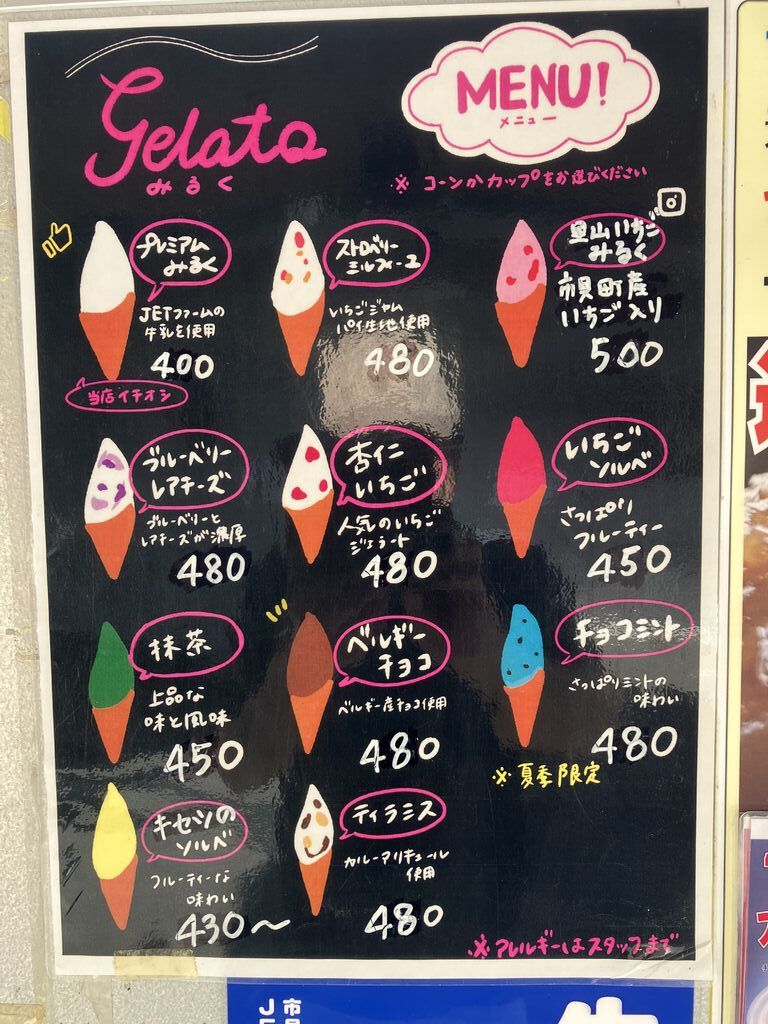 Gelato
みるく
MENU!
メニュー
※ コーンかカップをお選びください
プレミアム
みるく
JETファームの
牛乳を使用
400
当店イチオシ
ストロベリー
ミルフィーユ
いちごジャム
パイ生地使用
480
里山いちご
みるく
市貝町産
いちご入り
500
ブルーベリー
レアチーズ
ブルーベリーと
レアチーズが濃厚
480
杏仁
いちご
人気のいちご
ジェラート
480
いちご
ソルベ
さっぱり
フルーティー
450
抹茶
上品な
味と風味
450
ベルギー
チョコ
ベルギー産チョコ使用
480
チョコミント
さっぱりミントの
味わい
480
※夏季限定
キセツの
ソルベ
フルーティーな
味わい
430〜
ティラミス
カルーアリキュール
使用
480
※アレルギーはスタッフまで